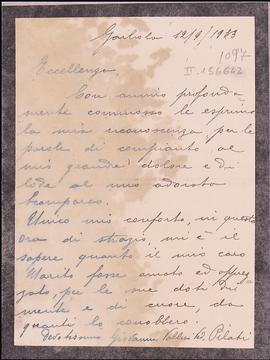 12/9/1933
1097
II.156662
Eccellenza,
Con animo profonda=
mente commosso le esprimo
la mia riconoscenza, per le
parole di compianto, al
mio grande dolore e di
lode al mio adorato
scomparso.
Unico mio conforto, in questa
ora di strazio, mi è il
sapere quanto il mio caro
Marito fosse amato ed apprez
zato, per le sue doti di
mente e di cuore, da
quanti lo conobbero.
Devotissima Giovanna Ved. Pilati